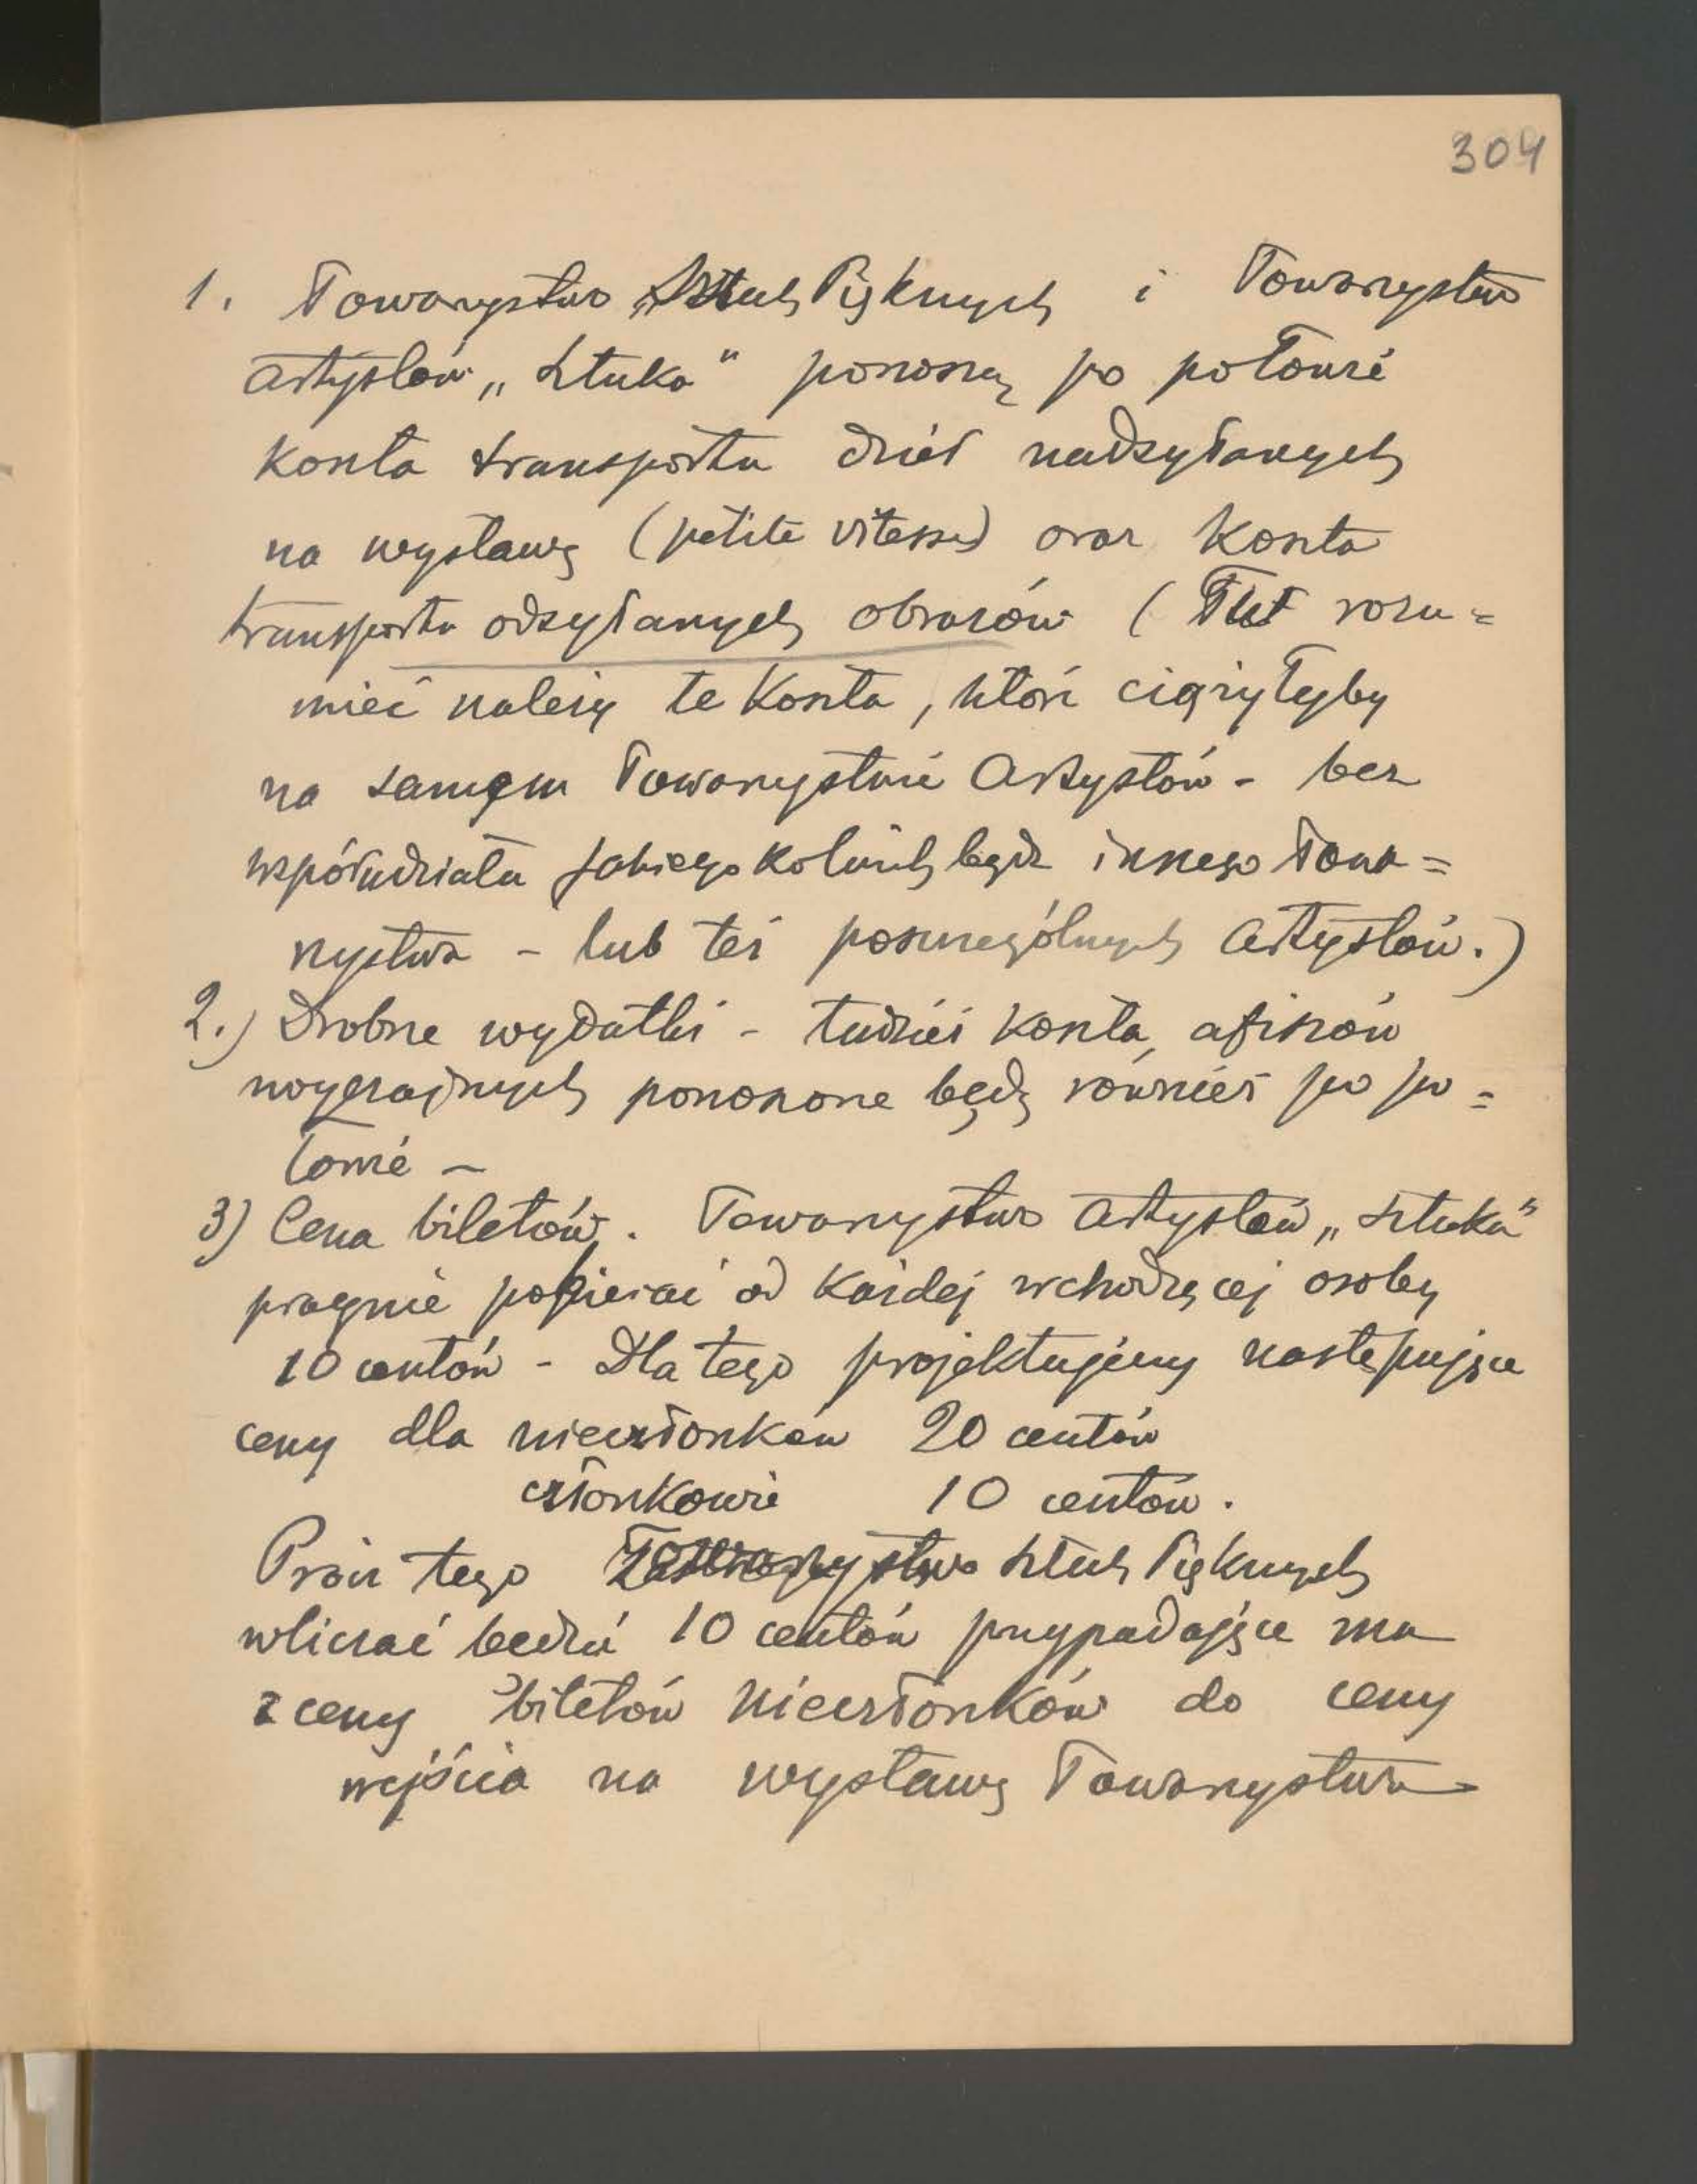 304
1. Towarzystwo Sztuk Pięknych i Towarzystwo
artystów „Sztuka" ponoszą po połowie
koszta transportu dzieł nadsyłanych
na wystawę (petite vitesse) oraz koszta
transportu odsyłanych obrazów (Tu rozu=
mieć należy te koszta, które ciążyłyby
na samem Towarzystwie Artystów - bez
współudziału jakiegokolwiek bądź innego Towa=
rzystwa - lub też poszczególnych artystów.)
2.) Drobne wydatki - tudzież koszta afiszów
ponoszone będą również po po=
łowie -
3) Cena biletów. Towarzystwo artystów „Sztuka"
pragnie pobierać od każdej wchodzącej osoby
10 centów - Dla tego projektujemy następujące
ceny dla nieczłonków 20 centów
członkowie 10 centów.
Prócz tego Towarzystwo Sztuk Pięknych
wliczać będzie 10 centów przypadające mu
z ceny biletów nieczłonków do ceny
wejścia na wystawę Towarzystwa